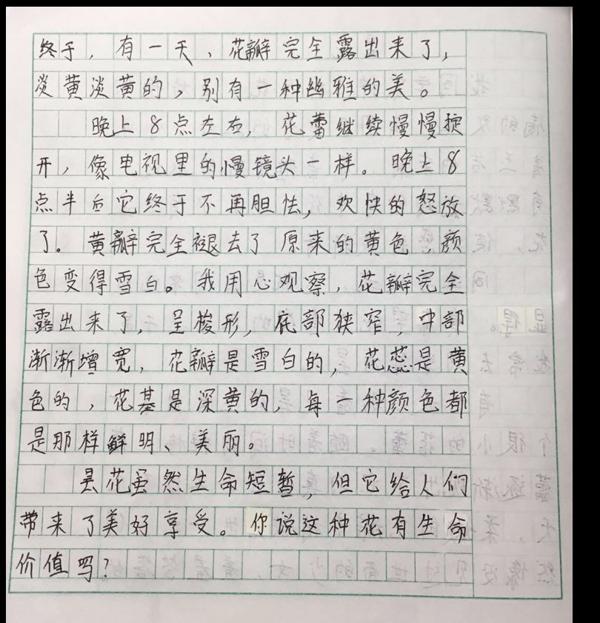 终于，有一天、花瓣完全露出来了，
淡黄淡黄的，别有一种幽雅的美。
晚上8点左右，花蕾继续慢慢掀
开，像电视里的慢镜头一样。晚上8
点半后它终于不再胆怯，欢快的怒放
了。黄瓣完全褪去了原来的黄色，颜
色变得雪白。我用心观察，花瓣完全
露出来了，呈梭形，底部狭窄，中部
渐渐增宽，花瓣是雪白的，花蕊是黄
色的，花基是深黄的，每一种颜色都
是那样鲜明、美丽。
昙花虽然生命短暂，但它给人们
带来了美好享受。你说这种花有生命
价值吗？